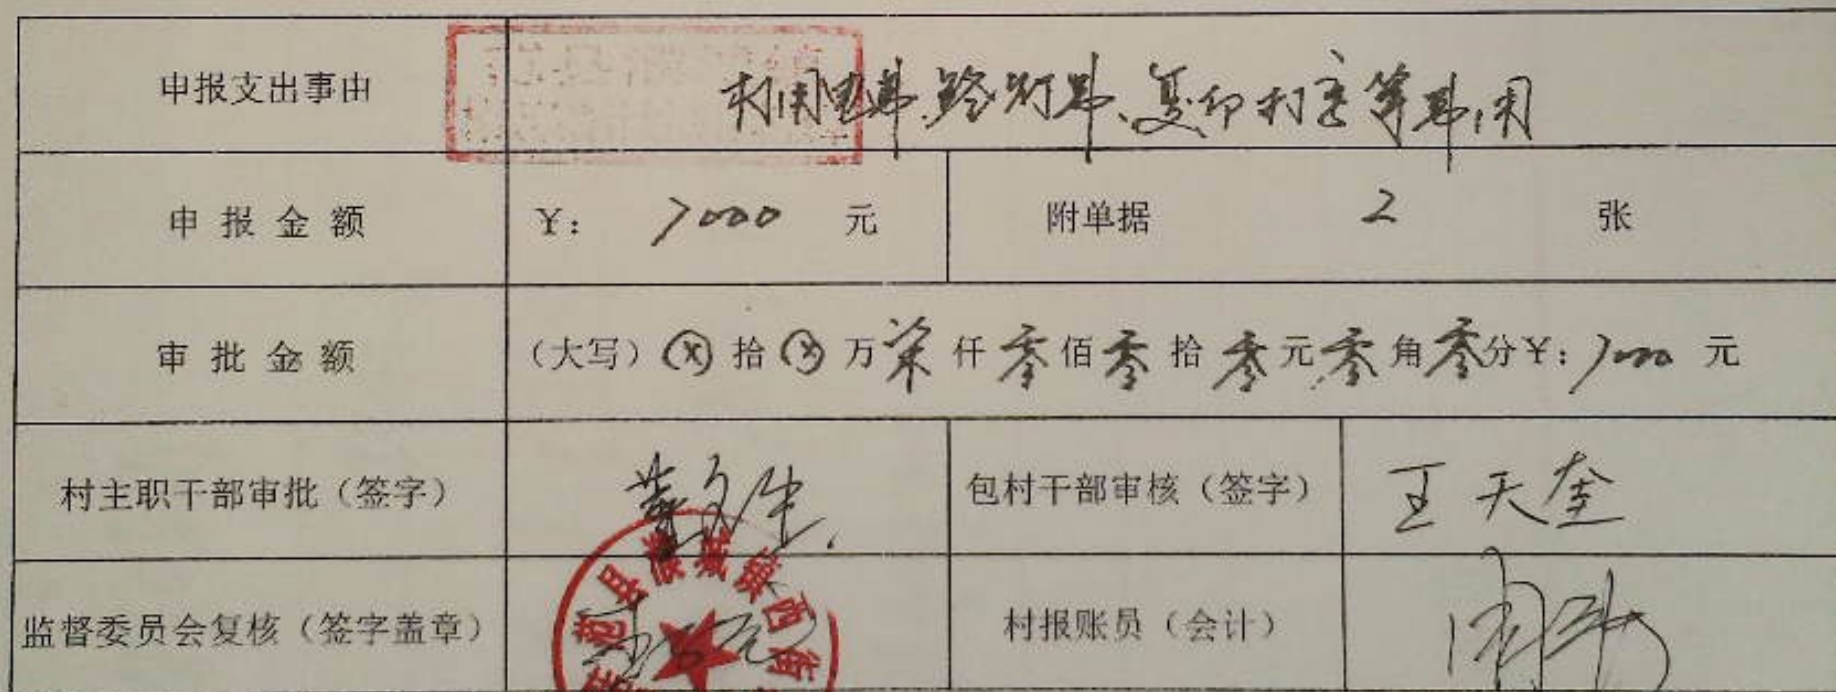 申报支出事由 村用电费、路灯费、复印材料等费用
申报金额 ¥: 7000 元 附单据 2 张
审批金额 (大写) ⊗ 拾 ⊗ 万 柒 仟 零 佰 零 拾 零 元 零 角 零 分 ¥: 7000 元
村主职干部审批(签字) 包村干部审核(签字) 王天奎
监督委员会复核(签字盖章) 村报账员(会计)
范县濮城镇西街